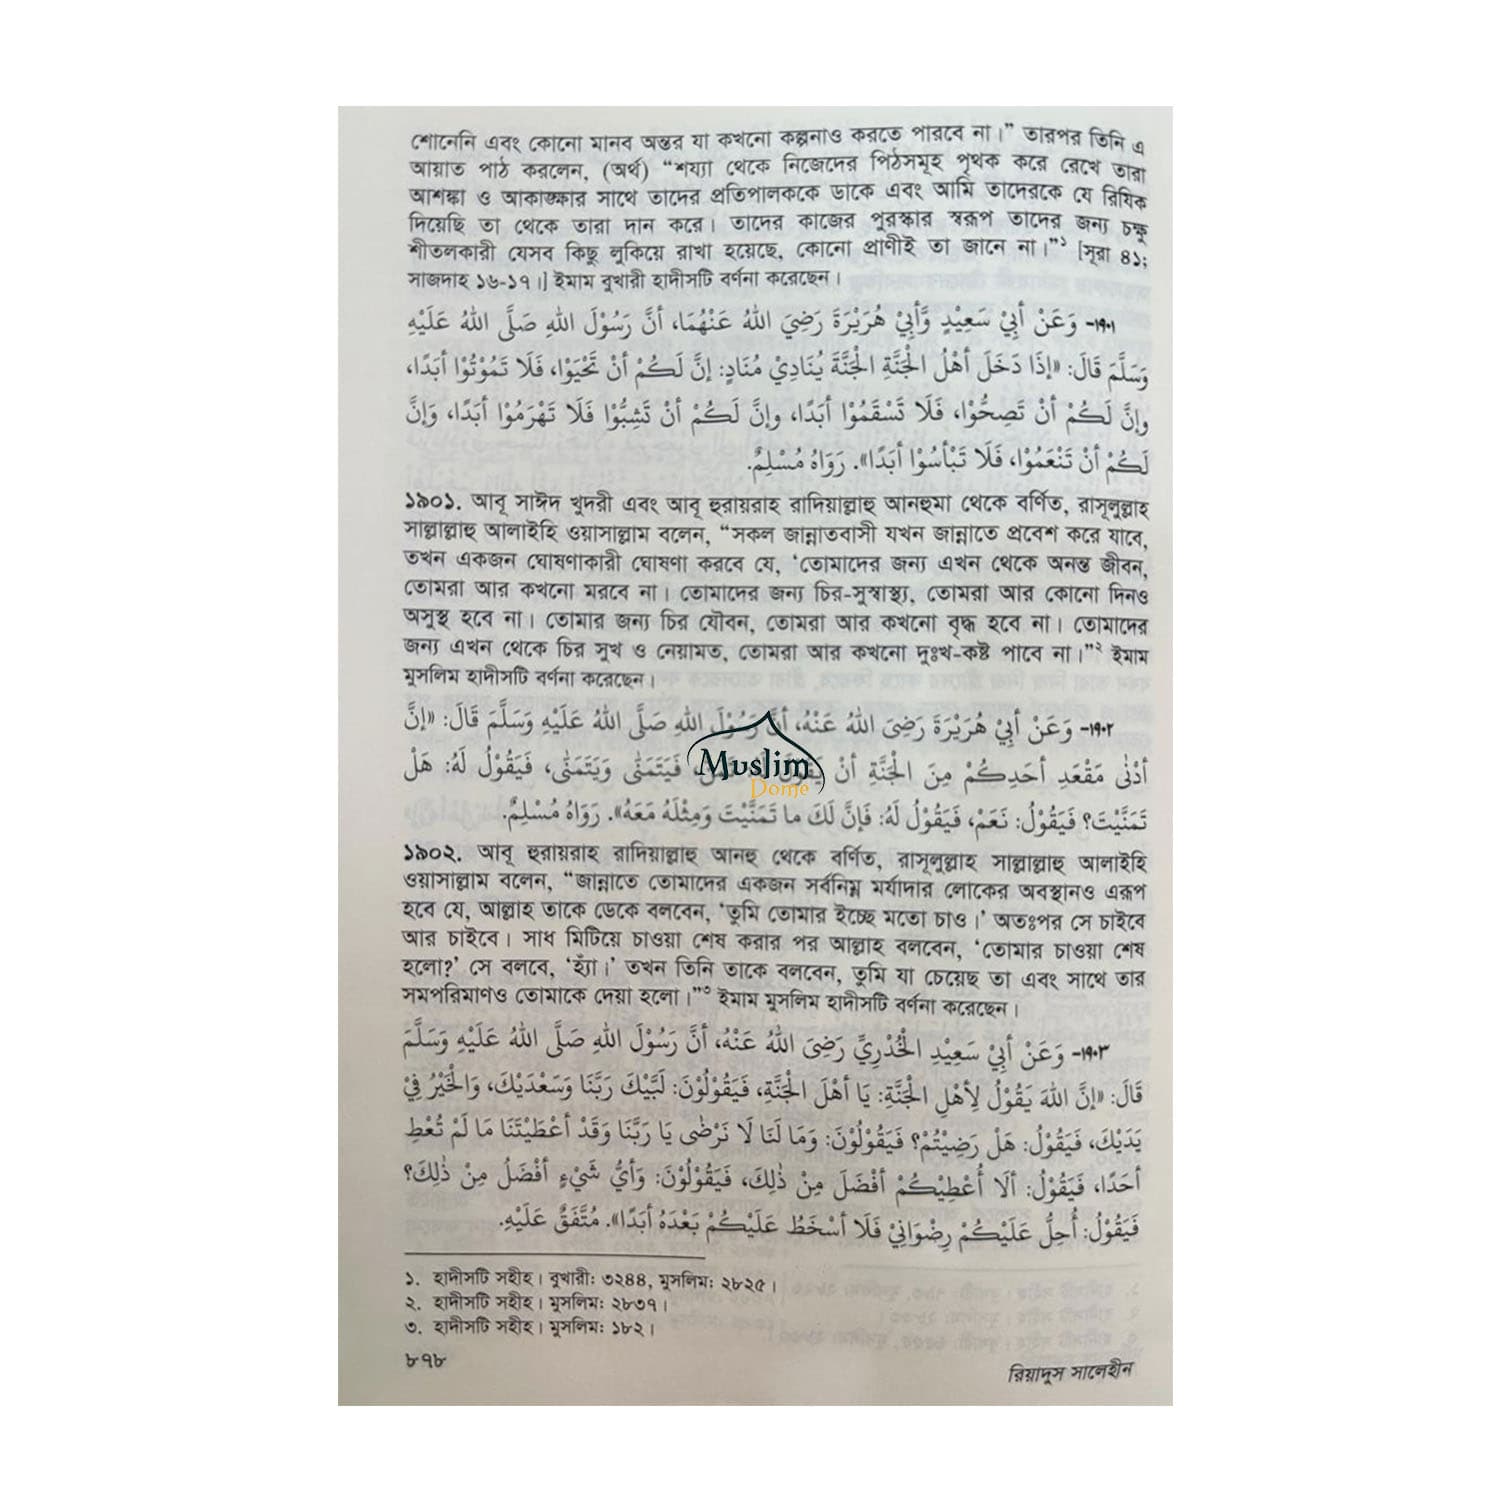 শোনেনি এবং কোনো মানব অন্তর যা কখনো কল্পনাও করতে পারবে না।” তারপর তিনি এ
আয়াত পাঠ করলেন, (অর্থ) “শয্যা থেকে নিজেদের পিঠসমূহ পৃথক করে রেখে তারা
আশঙ্কা ও আকাঙ্ক্ষার সাথে তাদের প্রতিপালককে ডাকে এবং আমি তাদেরকে যে রিযিক
দিয়েছি তা থেকে তারা দান করে। তাদের কাজের পুরস্কার স্বরূপ তাদের জন্য চক্ষু
শীতলকারী যেসব কিছু লুকিয়ে রাখা হয়েছে, কোনো প্রাণীই তা জানে না।”১ [সূরা ৪১;
সাজদাহ ১৬-১৭।] ইমাম বুখারী হাদীসটি বর্ণনা করেছেন।
১৯০১- وَعَنْ أَبِيْ سَعِيْدٍ وَّأَبِيْ هُرَيْرَةَ رَضِيَ اللهُ عَنْهُمَا، أَنَّ رَسُوْلَ اللهِ صَلَّى اللهُ عَلَيْهِ
وَسَلَّمَ قَالَ: «إِذَا دَخَلَ أَهْلُ الْجَنَّةِ الْجَنَّةَ يُنَادِيْ مُنَادٍ: إِنَّ لَكُمْ أَنْ تَحْيَوْا، فَلَا تَمُوْتُوْا أَبَدًا،
وإِنَّ لَكُمْ أَنْ تَصِحُّوْا، فَلَا تَسْقَمُوْا أَبَدًا، وإِنَّ لَكُمْ أَنْ تَشِبُّوْا فَلَا تَهْرَمُوْا أَبَدًا، وَإِنَّ
لَكُمْ أَنْ تَنْعَمُوْا، فَلَا تَبْأَسُوْا أَبَدًا». رَوَاهُ مُسْلِمٌ.
১৯০১. আবূ সাঈদ খুদরী এবং আবূ হুরায়রাহ রাদিয়াল্লাহু আনহুমা থেকে বর্ণিত, রাসূলুল্লাহ
সাল্লাল্লাহু আলাইহি ওয়াসাল্লাম বলেন, “সকল জান্নাতবাসী যখন জান্নাতে প্রবেশ করে যাবে,
তখন একজন ঘোষণাকারী ঘোষণা করবে যে, ‘তোমাদের জন্য এখন থেকে অনন্ত জীবন,
তোমরা আর কখনো মরবে না। তোমাদের জন্য চির-সুস্বাস্থ্য, তোমরা আর কোনো দিনও
অসুস্থ হবে না। তোমার জন্য চির যৌবন, তোমরা আর কখনো বৃদ্ধ হবে না। তোমাদের
জন্য এখন থেকে চির সুখ ও নেয়ামত, তোমরা আর কখনো দুঃখ-কষ্ট পাবে না।”২ ইমাম
মুসলিম হাদীসটি বর্ণনা করেছেন।
১৯০২- وَعَنْ أَبِيْ هُرَيْرَةَ رَضِىَ اللهُ عَنْهُ، أَنَّ رَسُوْلَ اللهِ صَلَّى اللهُ عَلَيْهِ وَسَلَّمَ قَالَ: «إِنَّ
أَدْنٰى مَقْعَدِ أَحَدِكُمْ مِنَ الْجَنَّةِ أَنْ يَقُوْلَ لَهُ تَمَنَّ، فَيَتَمَنّٰى وَيَتَمَنّٰى، فَيَقُوْلُ لَهُ: هَلْ
تَمَنَّيْتَ؟ فَيَقُوْلُ: نَعَمْ، فَيَقُوْلُ لَهُ: فَإِنَّ لَكَ ما تَمَنَّيْتَ وَمِثْلَهُ مَعَهُ». رَوَاهُ مُسْلِمٌ.
Muslim
Dome
১৯০২. আবূ হুরায়রাহ রাদিয়াল্লাহু আনহু থেকে বর্ণিত, রাসূলুল্লাহ সাল্লাল্লাহু আলাইহি
ওয়াসাল্লাম বলেন, “জান্নাতে তোমাদের একজন সর্বনিম্ন মর্যাদার লোকের অবস্থানও এরূপ
হবে যে, আল্লাহ তাকে ডেকে বলবেন, ‘তুমি তোমার ইচ্ছে মতো চাও।’ অতঃপর সে চাইবে
আর চাইবে। সাধ মিটিয়ে চাওয়া শেষ করার পর আল্লাহ বলবেন, ‘তোমার চাওয়া শেষ
হলো?’ সে বলবে, ‘হ্যাঁ।’ তখন তিনি তাকে বলবেন, তুমি যা চেয়েছ তা এবং সাথে তার
সমপরিমাণও তোমাকে দেয়া হলো।”৩ ইমাম মুসলিম হাদীসটি বর্ণনা করেছেন।
১৯০৩- وَعَنْ أَبِيْ سَعِيْدِ الْخُدْرِيِّ رَضِىَ اللهُ عَنْهُ، أَنَّ رَسُوْلَ اللهِ صَلَّى اللهُ عَلَيْهِ وَسَلَّمَ
قَالَ: «إِنَّ اللهَ يَقُوْلُ لِأَهْلِ الْجَنَّةِ: يَا أَهْلَ الْجَنَّةِ، فَيَقُوْلُوْنَ: لَبَّيْكَ رَبَّنَا وَسَعْدَيْكَ، وَالْخَيْرُ فِيْ
يَدَيْكَ، فَيَقُوْلُ: هَلْ رَضِيْتُمْ؟ فَيَقُوْلُوْنَ: وَمَا لَنَا لَا نَرْضٰى يَا رَبَّنَا وَقَدْ أَعْطَيْتَنَا مَا لَمْ تُعْطِ
أَحَدًا، فَيَقُوْلُ: أَلَا أُعْطِيْكُمْ أَفْضَلَ مِنْ ذٰلِكَ، فَيَقُوْلُوْنَ: وَأَيُّ شَيْءٍ أَفْضَلُ مِنْ ذٰلِكَ؟
فَيَقُوْلُ: أُحِلُّ عَلَيْكُمْ رِضْوَانِيْ فَلَا أَسْخَطُ عَلَيْكُمْ بَعْدَهُ أَبَدًا». مُتَّفَقٌ عَلَيْهِ.
১. হাদীসটি সহীহ। বুখারী: ৩২৪৪, মুসলিম: ২৮২৫।
২. হাদীসটি সহীহ। মুসলিম: ২৮৩৭।
৩. হাদীসটি সহীহ। মুসলিম: ১৮২।
৮৭৮
রিয়াদুস সালেহীন